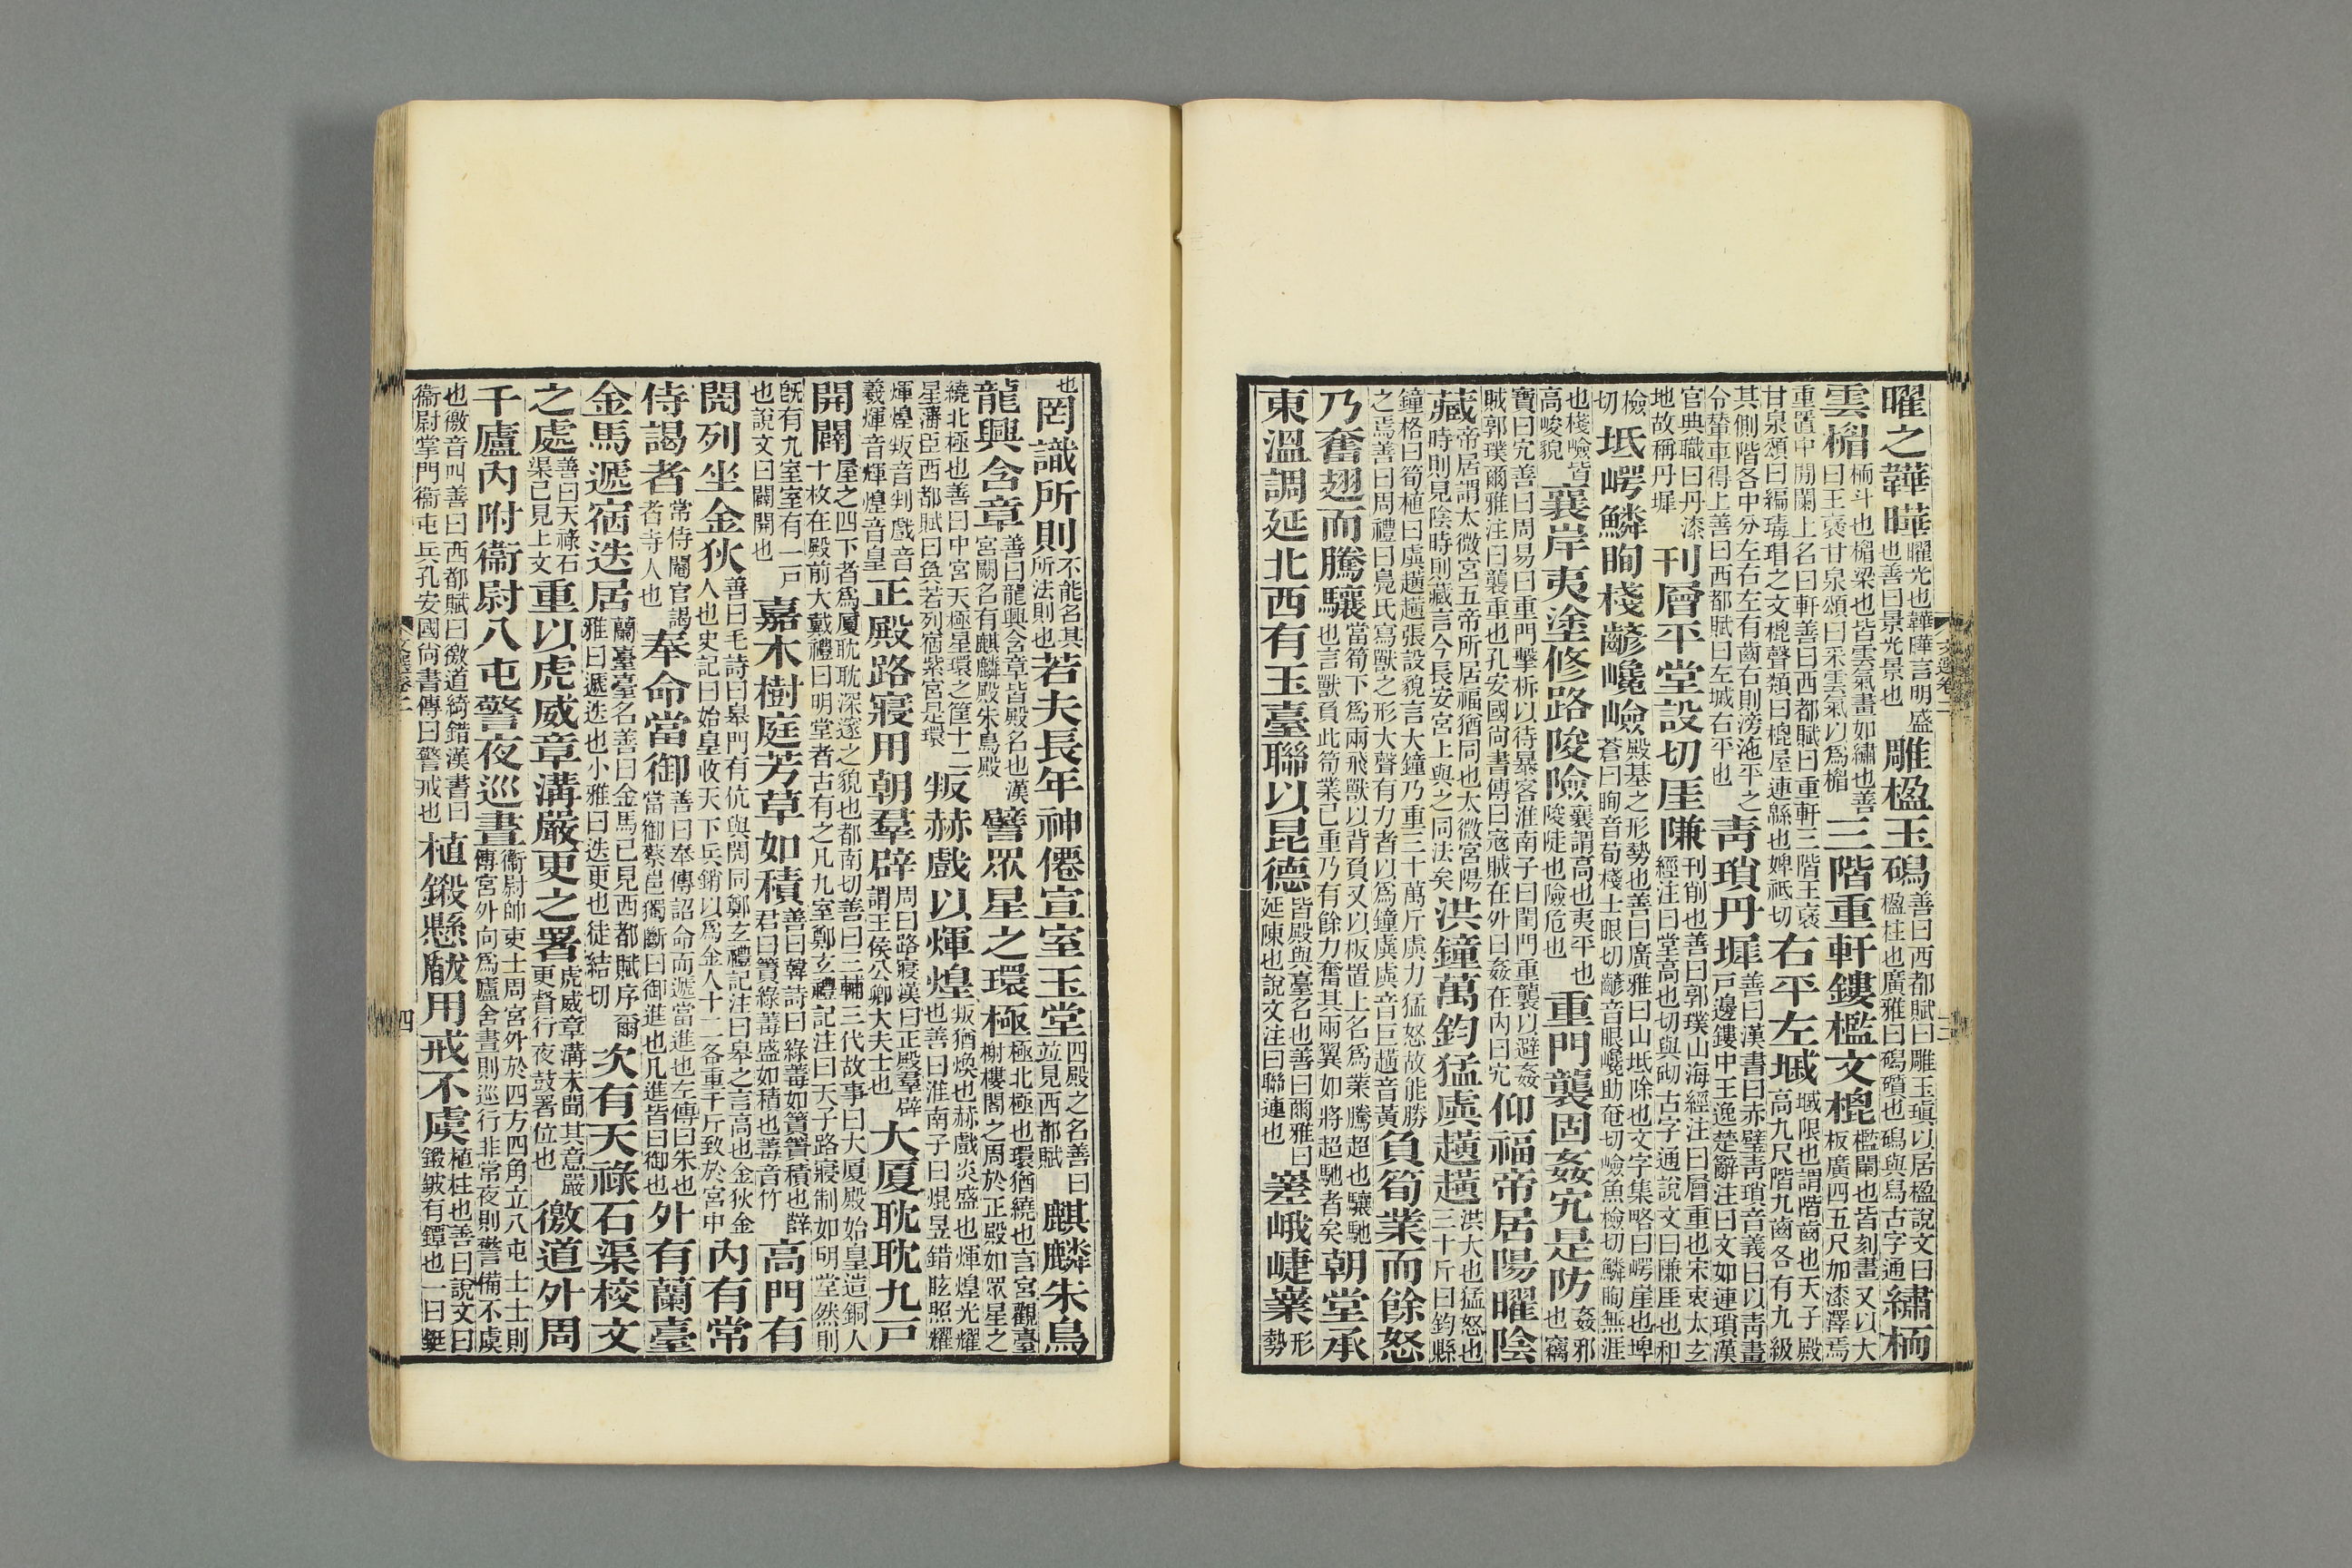 曜之韡曄曜光也韡曄言明盛也善曰景光景也雕楹玉磶善曰西都賦曰雕玉瑱以居楹說文曰楹柱也廣雅曰磶礩也磶與舄古字通繡栭
雲楣栭斗也楣梁也皆雲氣畫如繡也善曰王襃甘泉頌曰采雲氣以爲楣三階重軒鏤檻文㮰檻闌也皆刻畫又以大板廣四五尺加漆澤焉
重置中間闌上名曰軒善曰西都賦曰重軒三階王襃甘泉頌曰編瑇瑁之文㮰聲類曰㮰屋連緜也婢祗切右平左墄墄限也謂階齒也天子殿高九尺階九齒各有九級
其側階各中分左右左有齒右則滂沲平之令輦車得上善曰西都賦曰左墄右平也青瑣丹墀善曰漢書曰赤墀青瑣音義曰以青畫戶邊鏤中王逸楚辭注曰文如連瑣漢
官典職曰丹漆地故稱丹墀刊層平堂設切厓隒刊削也善曰郭璞山海經注曰層重也宋衷太玄經注曰堂高也切與砌古字通說文曰隒厓也和
檢切坻崿鱗眴棧齴巉嶮殿基之形勢也善曰廣雅曰山坻除也文字集略曰崿崖也埤蒼曰眴音荀棧士眼切齴音眼巉助奄切嶮魚檢切鱗眴無涯
也棧嶮皆高峻貌襄岸夷塗修路陖險襄謂高也夷平也陖陡也險危也重門襲固姦宄是防姦邪也竊
寶曰宄善曰周易曰重門擊柝以待暴客淮南子曰閨門重襲以避姦賊郭璞爾雅注曰襲重也孔安國尚書傳曰寇賊在外曰姦在內曰宄仰福帝居陽曜陰
藏帝居謂太微宮五帝所居福猶同也太微宮陽時則見陰時則藏言今長安宮上與之同法矣洪鐘萬鈞猛虡趪趪洪大也猛怒也三十斤曰鈞縣
鐘格曰筍植曰虡趪趪張設貌言大鐘乃重三十萬斤虡力猛怒故能勝之焉善曰周禮曰鳧氏寫獸之形大聲有力者以爲鐘虡虡音巨趪音黃負筍業而餘怒
乃奮翅而騰驤當筍下爲兩飛獸以背負又以板置上名爲業騰超也驤馳也言獸負此筍業已重乃有餘力奮其兩翼如將超馳者矣朝堂承
東溫調延北西有玉臺聯以昆德皆殿與臺名也善曰爾雅曰延陳也說文注曰聯連也嵳峨崨嶪形勢
文選卷二
三
也罔識所則不能名其所法則也若夫長年神僊宣室玉堂四殿之名善曰竝見西都賦麒麟朱鳥
龍興含章善曰龍興含章皆殿名也漢宮闕名有麒麟殿朱鳥殿譬眾星之環極極北極也環猶繞也言宮觀臺榭樓閣之周於正殿如眾星之
繞北極也善曰中宮天極星環之筐十二星藩臣西都賦曰奐若列宿紫宮是環叛赫戲以煇煌叛猶煥也赫戲炎盛也煇煌光耀也善曰淮南子曰焜昱錯眩照耀
煇煌叛音判戲音羲煇音輝煌音皇正殿路寢用朝羣辟周曰路寢漢曰正殿羣辟謂王侯公卿大夫士也大厦耽耽九戶
開闢屋之四下者爲厦耽耽深邃之貌也都南切善曰三輔三代故事曰大厦殿始皇造銅人十枚在殿前大戴禮曰明堂者古有之凡九室鄭玄禮記注曰天子路寢制如明堂然則
旣有九室室有一戶也說文曰闢開也嘉木樹庭芳草如積善曰韓詩曰綠䔲如簀簀積也薛君曰簀綠䔲盛如積也䔲音竹高門有
閌列坐金狄善曰毛詩曰皋門有伉與閌同鄭玄禮記注曰皋之言高也金狄金人也史記曰始皇收天下兵銷以爲金人十二各重千斤致於宮中內有常
侍謁者常侍閹官謁者寺人也奉命當御善曰奉傳詔命而遞當進也左傳曰朱也當御蔡邕獨斷曰御進也凡進皆曰御也外有蘭臺
金馬遞宿迭居蘭臺臺名善曰金馬已見西都賦序爾雅曰遞迭也小雅曰迭更也徒結切次有天祿石渠校文
之處善曰天祿石渠已見上文重以虎威章溝嚴更之署虎威章溝未聞其意嚴更督行夜鼓署位也徼道外周
千廬內附衞尉八屯警夜巡晝衞尉帥吏士周宮外於四方四角立八屯士士則傳宮外向爲廬舍晝則巡行非常夜則警備不虞
也徼音叫善曰西都賦曰徼道綺錯漢書曰衞尉掌門衞屯兵孔安國尚書傳曰警戒也植鎩懸瞂用戒不虞植柱也善曰說文曰鎩鈹有鐔也一曰鋋
文選卷二
四